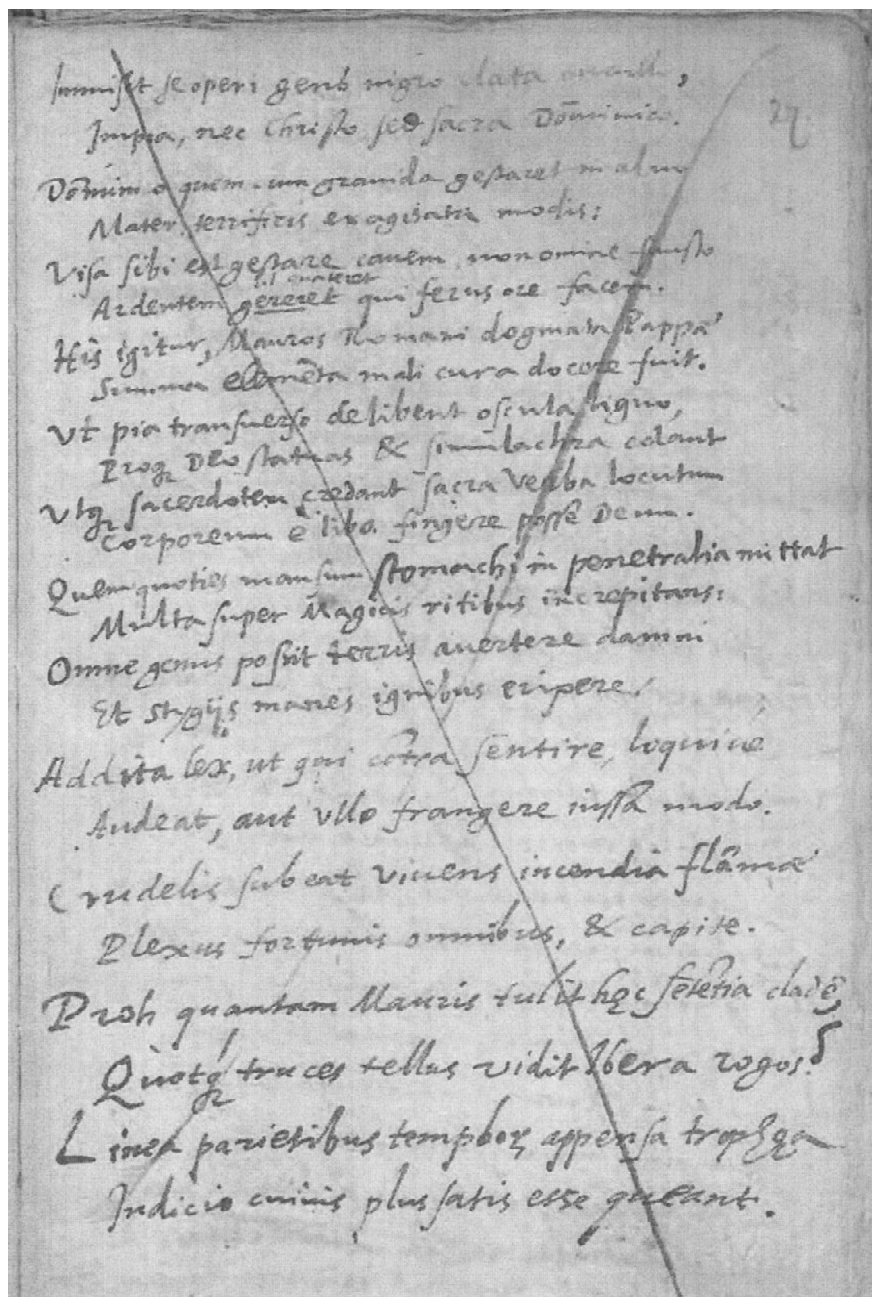 Immisit se operi gens nigro clata cucullo,
Impia, nec Christo sed sacra Dōminico.
Dōminico quem cum gravida gestaret in alvo
Mater, terrificis exagitata modis:
Visa sibi est gestare canem non omine fausto
vel quateret
Ardentem gereret qui ferus ore facem.
His igitur, Mauros Romani dogmata Pappæ
Summa elemēta mali cura docere fuit.
Vt pia transuerso delibent oscula ligno,
Proq; Deo statuas & simulachra colant
Vtq; sacerdotem credant sacra verba locutum
Corporeum è libo fingere posse Deum.
Quem quoties mansum stomachi in penetralia mittat
Multa super Magicis ritibus increpitans:
Omne genus possit terris auertere damni
Et Stygijs manes ignibus eripere.
Addita lex, ut qui cōtra sentire, loquiue
Audeat, aut vllo frangere iussa modo.
Crudelis subeat viuens incendia flāmæ
Plexus fortunis omnibus, & capite.
Proh quantam Mauris tulit hęc sētētia cladē,
Quotq; truces tellus vidit Ibera rogos!
Linea parietibus temploꝝ appensa trophęa
Indicio cuiuis plus satis esse queant.